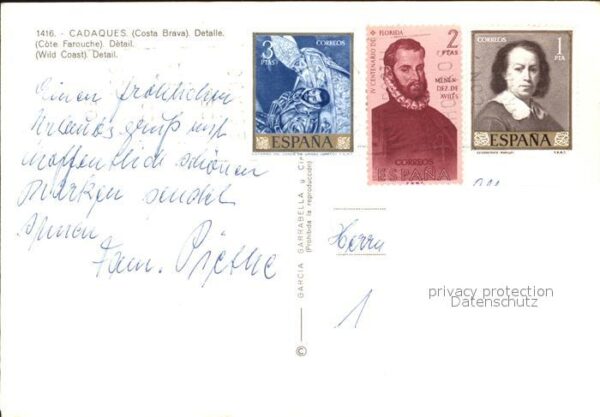 1416. - CADAQUES. (Costa Brava). Detalle.
(Côte Farouche). Détail.
(Wild Coast). Detail.
Einen fröhlichen
Urlaubsgruß mit
hoffentlich schönen
Marken sendet
Ihnen
Fam.
3
PTAS
CORREOS
ESPAÑA
IV CENTENARIO DE FLORIDA
2
PTAS
MENEN
DEZ, DE
AVILÉS
CORREOS
ESPAÑA
CORREOS
1
PTA
ESPAÑA
© GARCIA GARRABELLA y Cía
(Prohibida la reproducción)
Herrn
1
privacy protection
Datenschutz